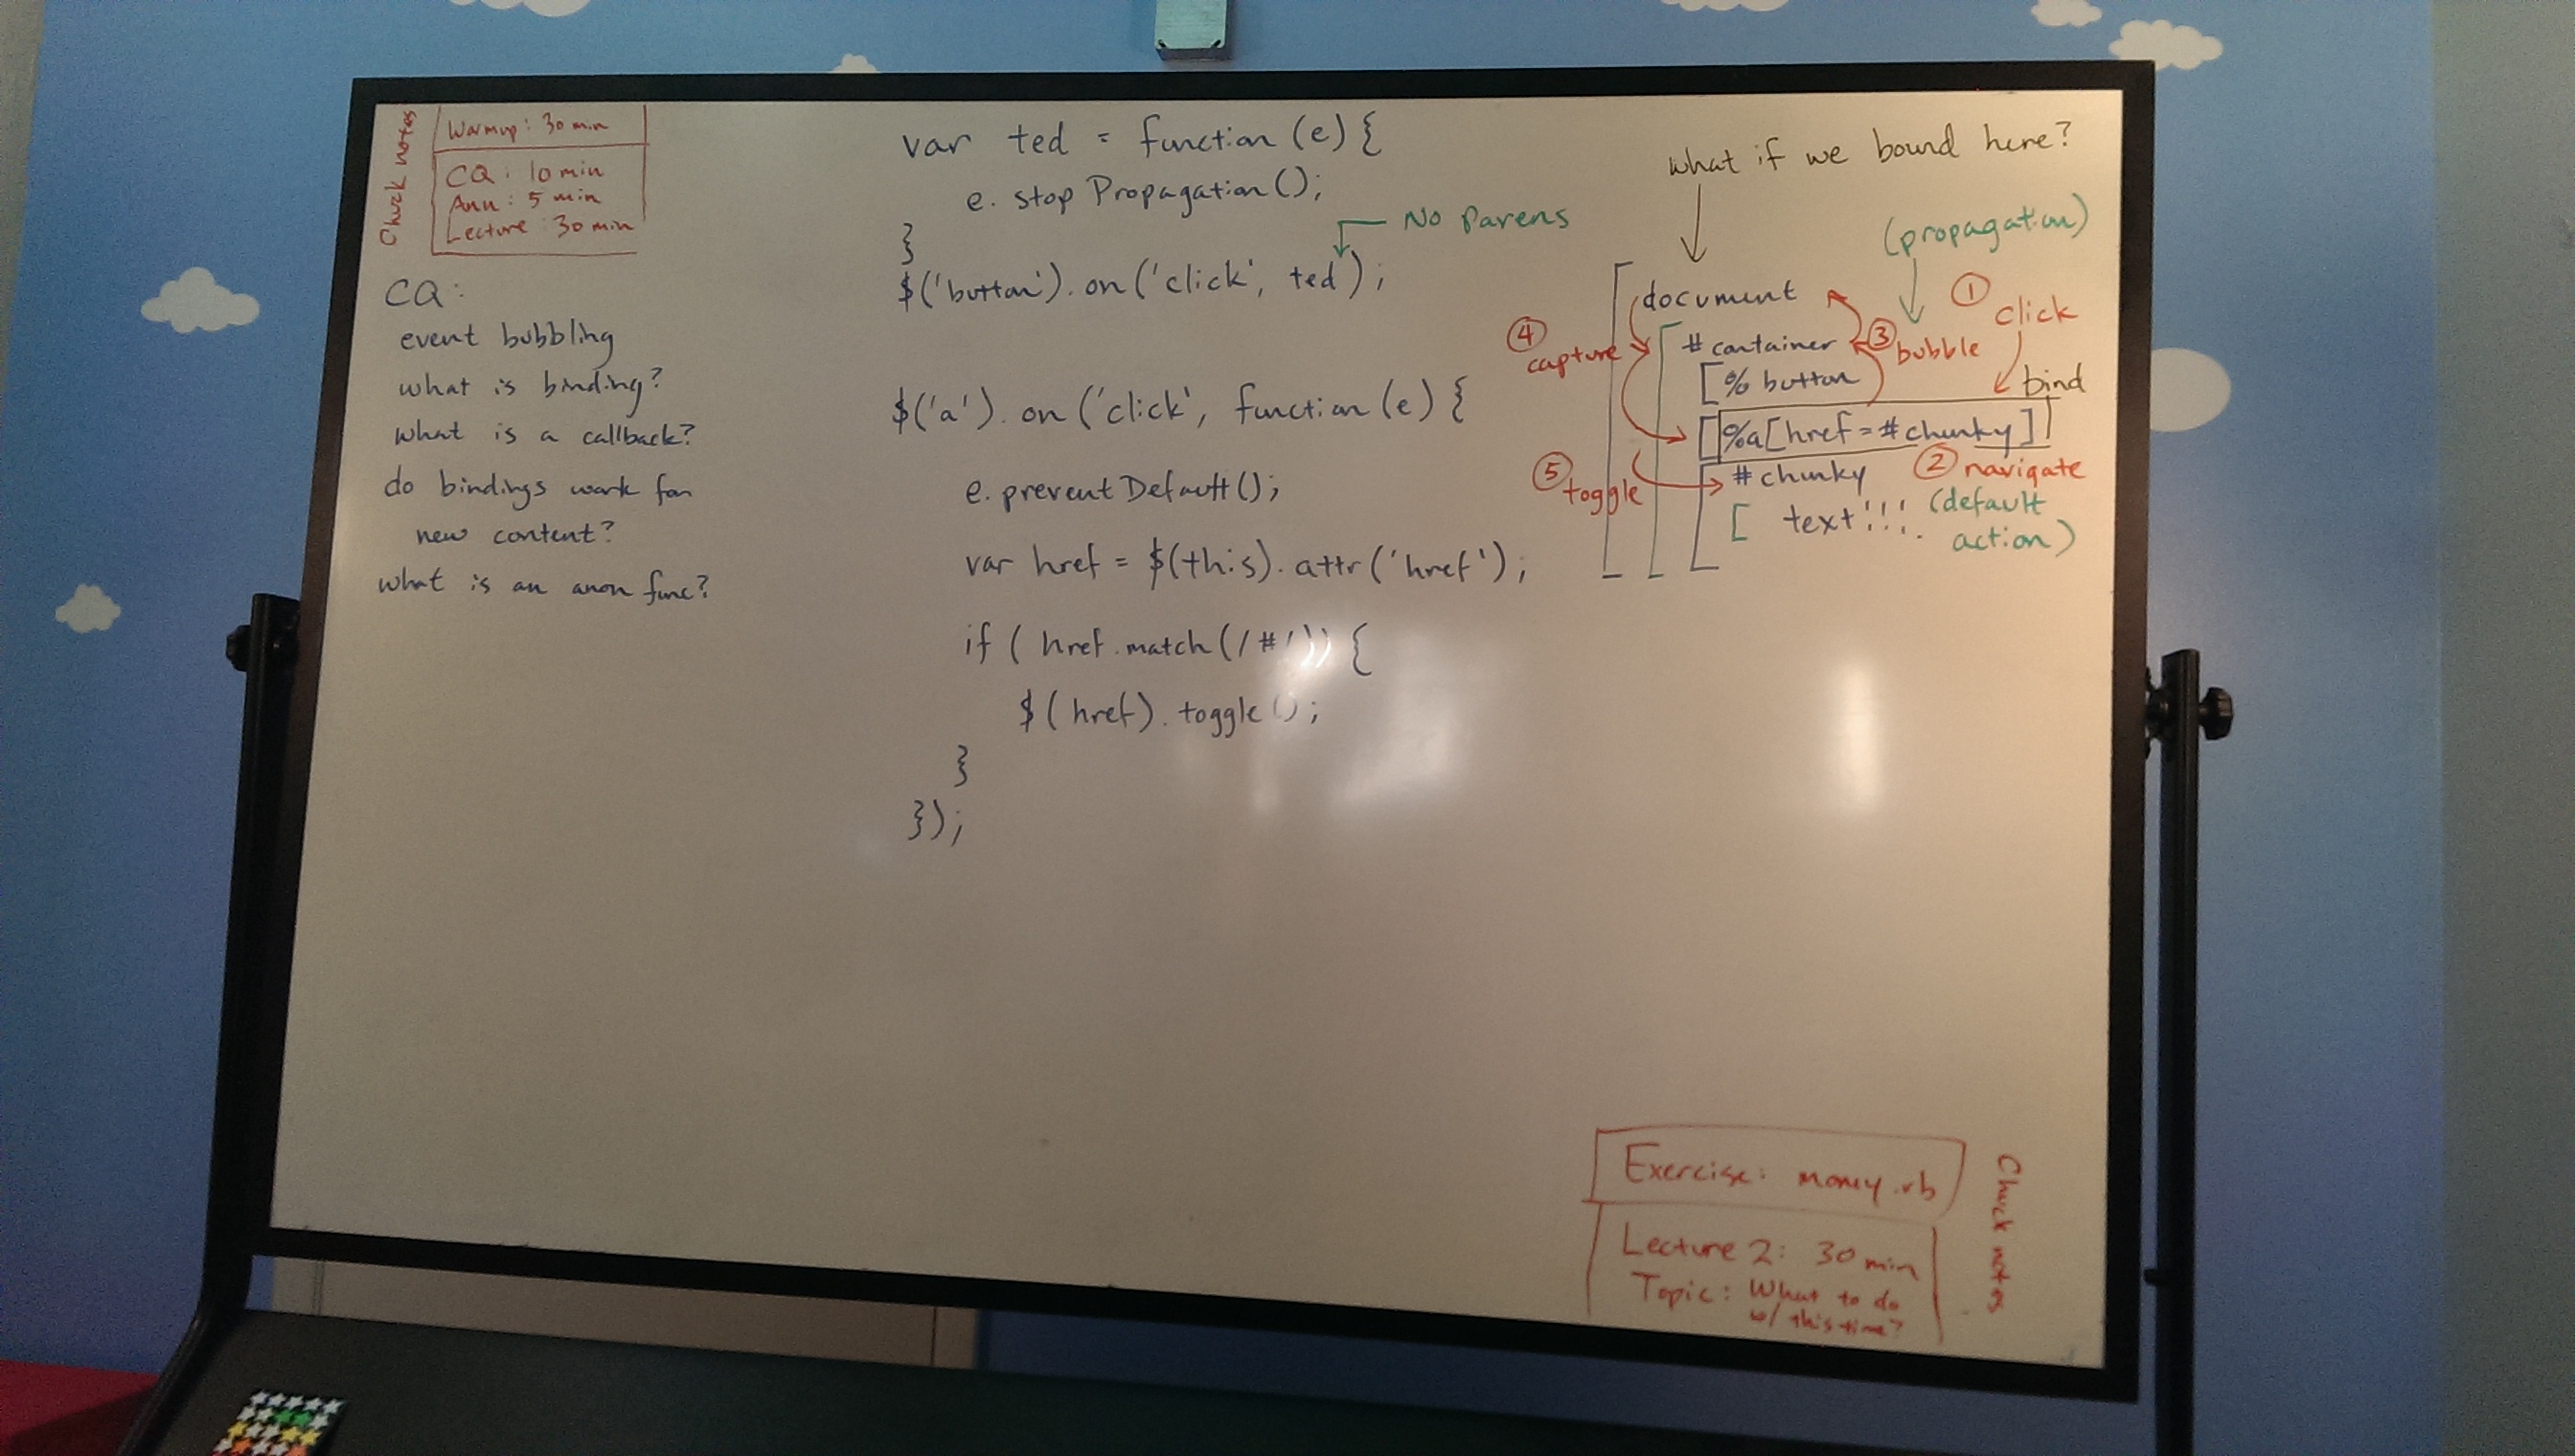 Chuck notes
Warmup: 30 min
CQ: 10 min
Ann: 5 min
Lecture: 30 min
CQ:
event bubbling
what is binding?
what is a callback?
do bindings work for
new content?
what is an anon func?
var ted = function (e) {
e. stop Propagation();
}
No parens
$('button').on('click', ted);
$('a').on('click', function (e) {
e.preventDefault();
var href = $(this).attr('href');
if ( href.match(/#/)) {
$(href).toggle();
}
});
what if we bound here?
(propagation)
document
① click
④ capture
#container
③ bubble
% button
bind
%a[href=#chunky]
⑤ toggle
#chunky
② navigate
(default
action)
text!!!
Exercise: money.rb
Lecture 2: 30 min
Topic: What to do
w/ this time?
Chuck notes